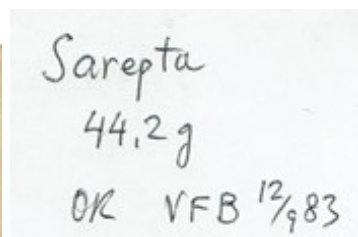 Sarepta
44,2 g
OK VFB 12/9 83